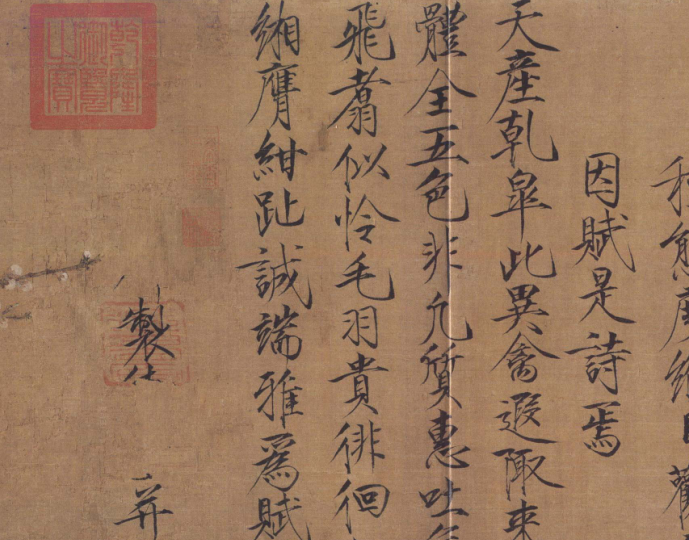 因賦是詩焉
天産乾皐此異禽遐陬来
體全五色非凡質惠吐
飛翥似怜毛羽貴徘徊
緗膺紺趾誠端雅爲賦
製
并
乾隆御覽之寶